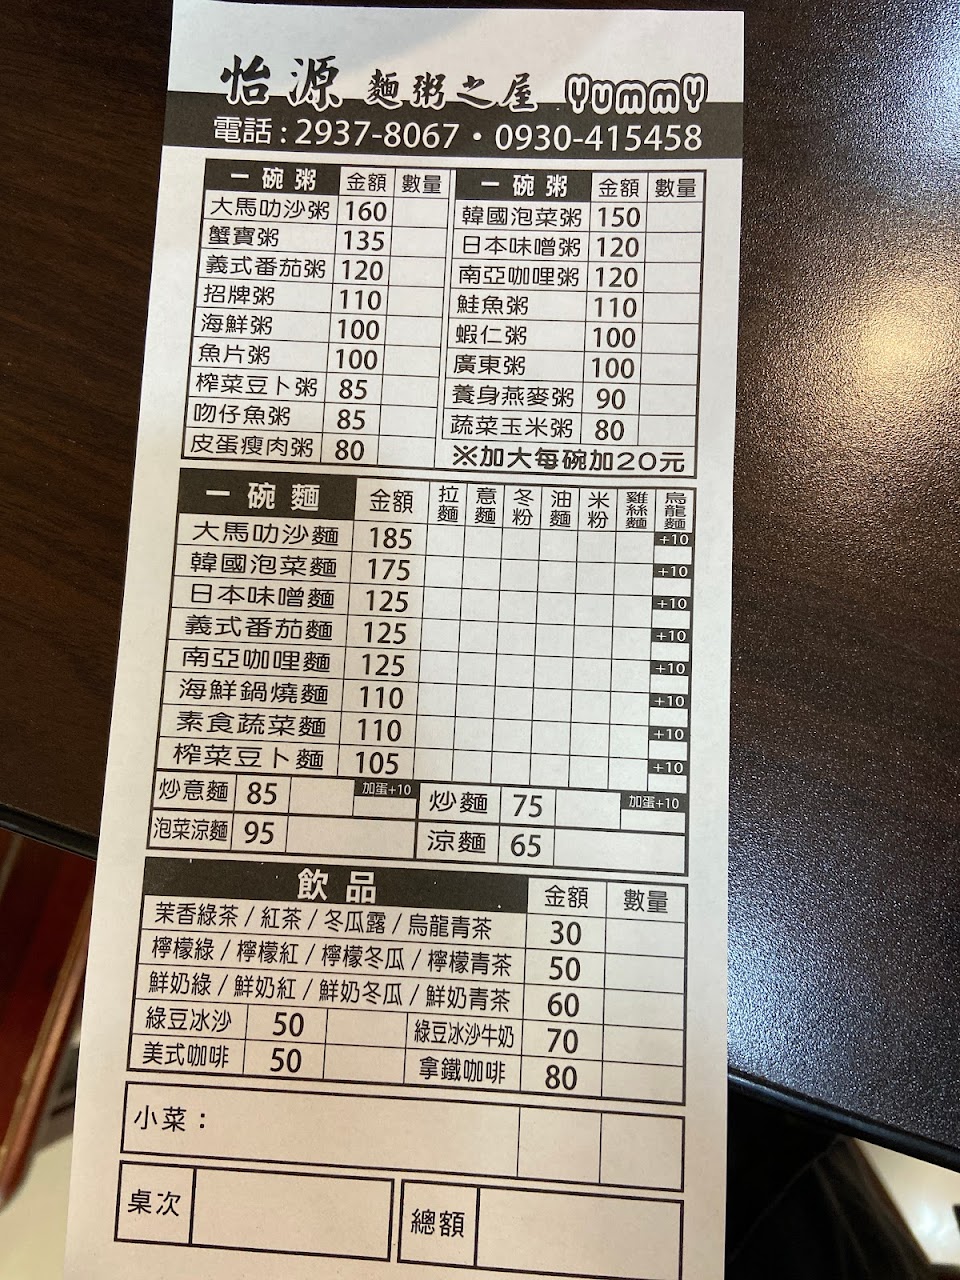 怡源 麵粥之屋 YummY
電話：2937-8067・0930-415458
一碗粥 金額 數量
大馬叻沙粥 160
蟹寶粥 135
義式番茄粥 120
招牌粥 110
海鮮粥 100
魚片粥 100
榨菜豆卜粥 85
吻仔魚粥 85
皮蛋瘦肉粥 80
一碗粥 金額 數量
韓國泡菜粥 150
日本味噌粥 120
南亞咖哩粥 120
鮭魚粥 110
蝦仁粥 100
廣東粥 100
養身燕麥粥 90
蔬菜玉米粥 80
※加大每碗加20元
一碗麵 金額 拉麵 意麵 冬粉 油麵 米粉 雞絲麵 烏龍麵
大馬叻沙麵 185 +10
韓國泡菜麵 175 +10
日本味噌麵 125 +10
義式番茄麵 125 +10
南亞咖哩麵 125 +10
海鮮鍋燒麵 110 +10
素食蔬菜麵 110 +10
榨菜豆卜麵 105 +10
炒意麵 85 加蛋+10 炒麵 75 加蛋+10
泡菜涼麵 95 涼麵 65
飲品 金額 數量
茉香綠茶 / 紅茶 / 冬瓜露 / 烏龍青茶 30
檸檬綠 / 檸檬紅 / 檸檬冬瓜 / 檸檬青茶 50
鮮奶綠 / 鮮奶紅 / 鮮奶冬瓜 / 鮮奶青茶 60
綠豆冰沙 50 綠豆冰沙牛奶 70
美式咖啡 50 拿鐵咖啡 80
小菜：
桌次 總額